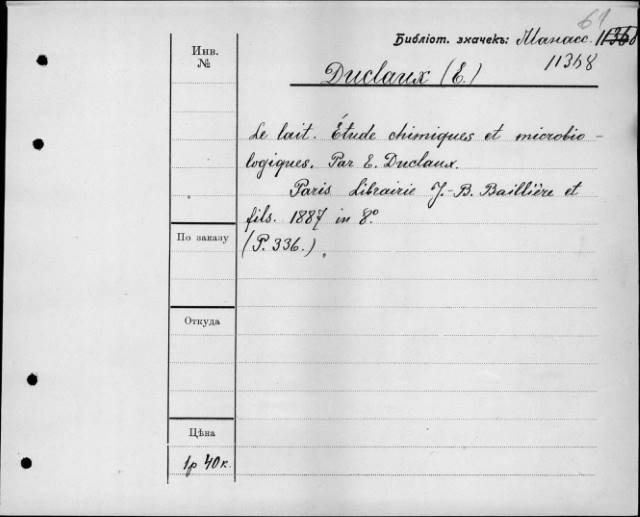 61
Библіот. значекъ: Манасс.
11368
Инв.
№
Duclaux (E.)
Le lait. Étude chimiques et microbio-
logiques. Par E. Duclaux.
Paris Librairie J.-B. Baillière et
fils. 1887 in 8º
По заказу
(P. 336.)
Откуда
Цѣна
1р 40к.